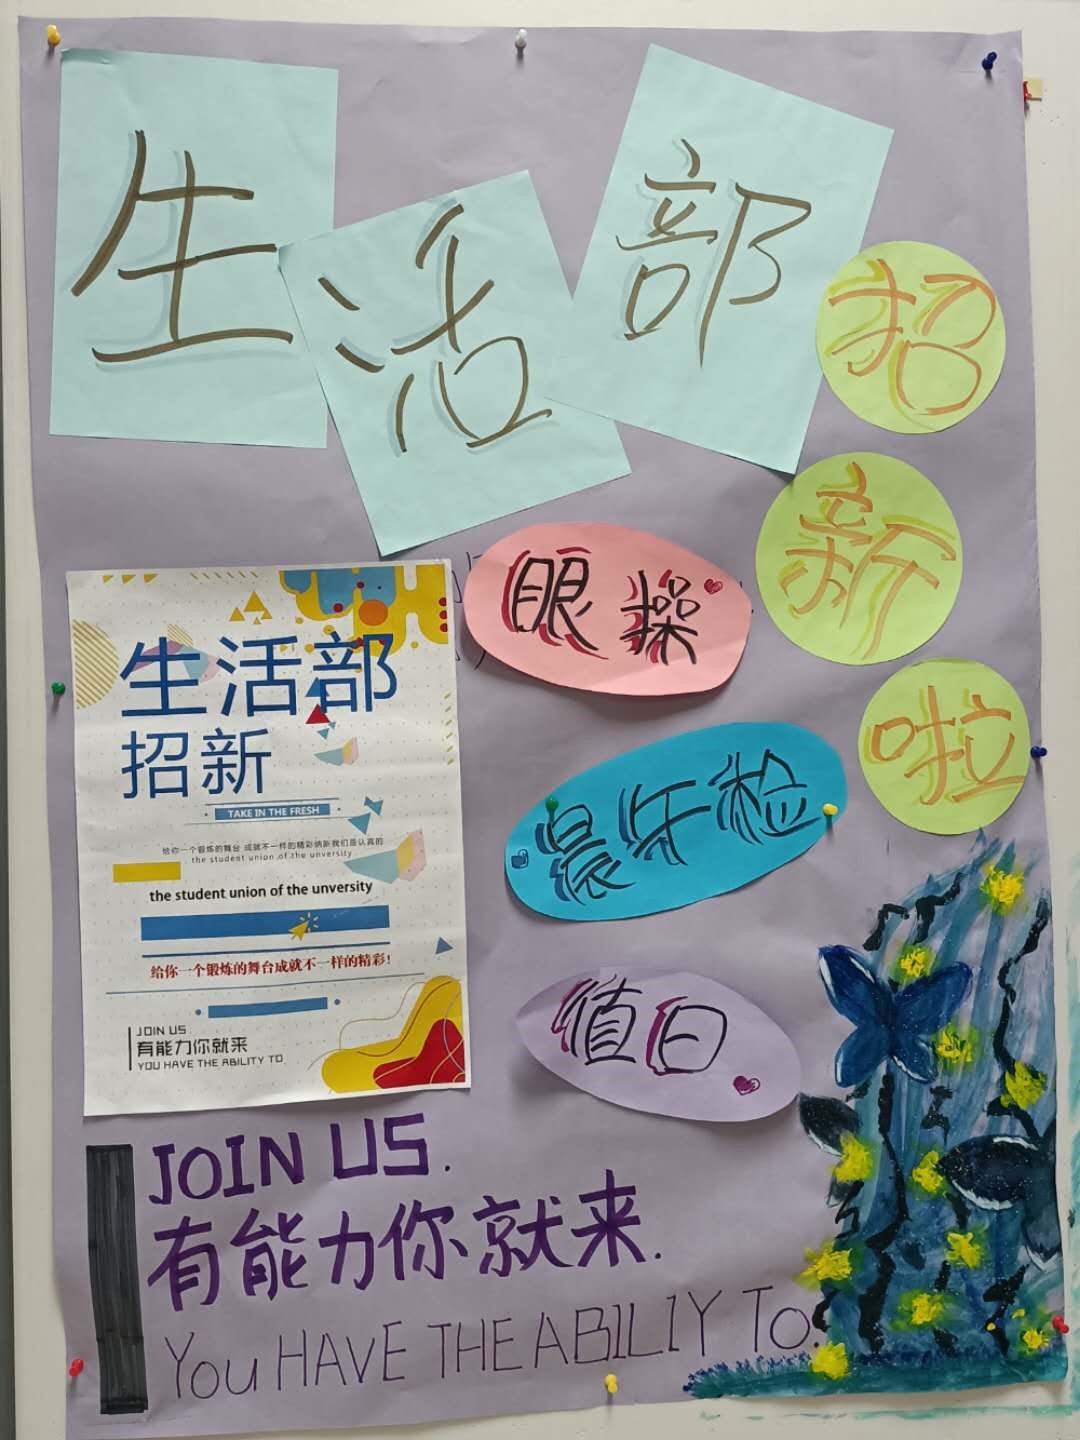 生活部
招新啦
眼操
晨午检
值日
生活部
招新
TAKE IN THE FRESH
给你一个锻炼的舞台 成就不一样的精彩纳新我们是认真的
the student union of the unversity
the student union of the unversity
给你一个锻炼的舞台成就不一样的精彩!
JOIN US
有能力你就来
YOU HAVE THE ABILITY TO
JOIN US.
有能力你就来.
YOU HAVE THE ABILIY TO.